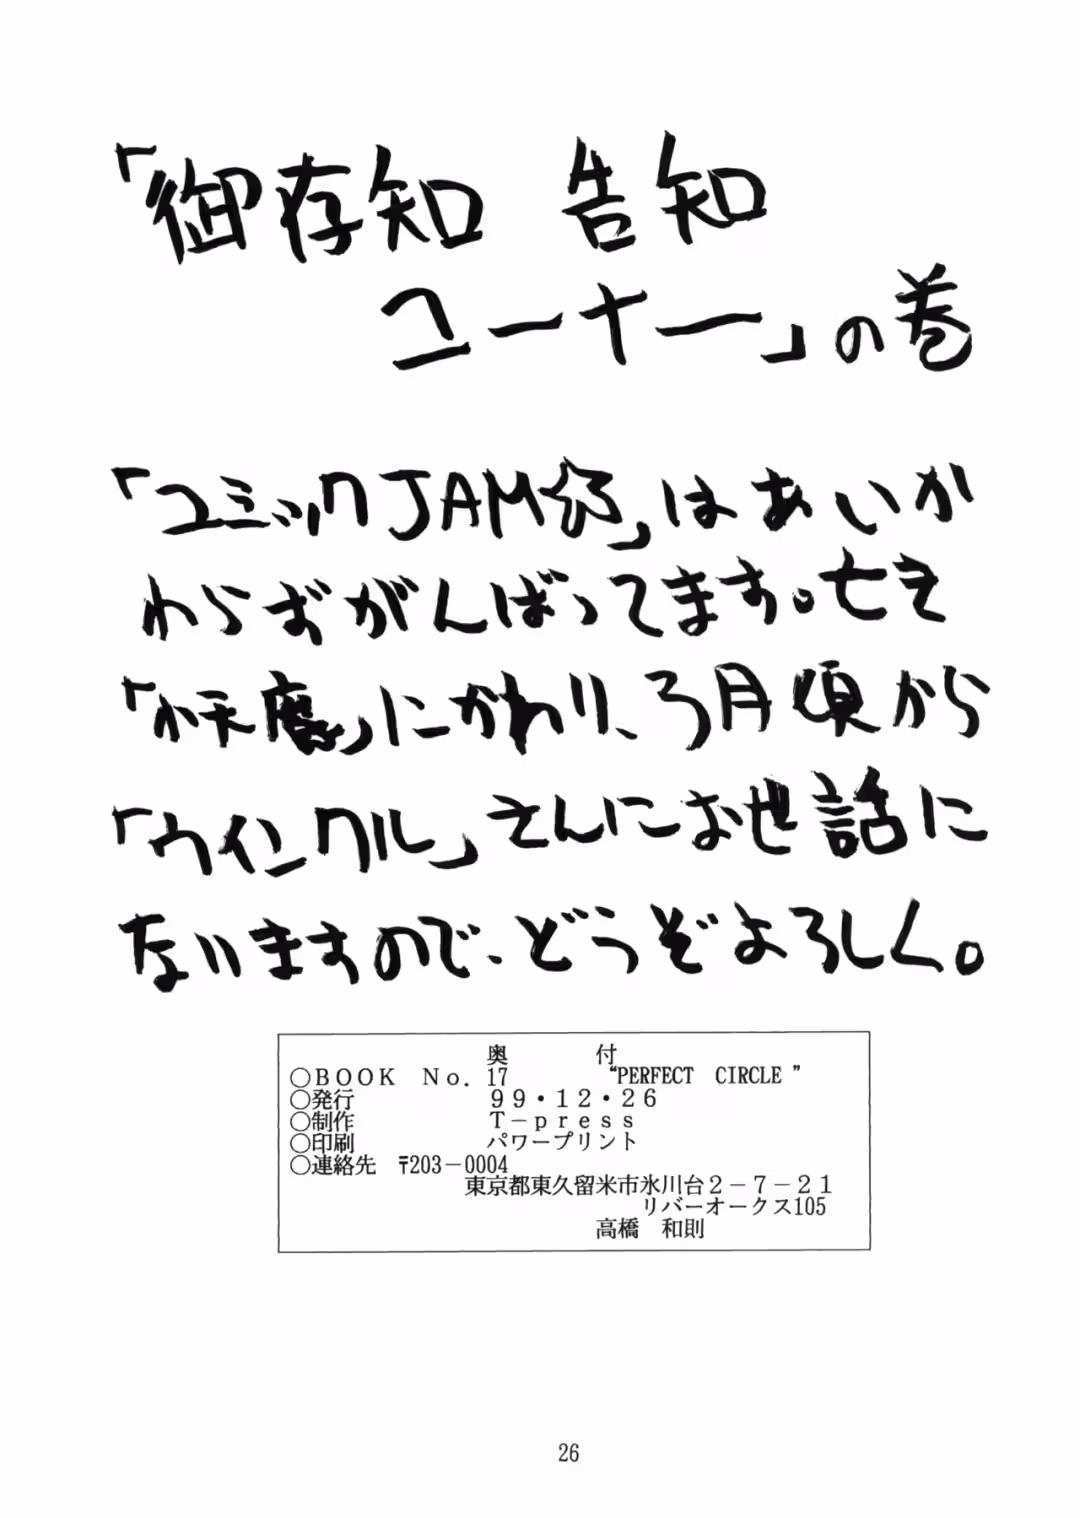 「御存知 告知
コーナー」の巻
「コミックJAM
」はあいか
わらずがんばってます。亡き
「
天魔」にかわり、3月頃から
「ウインクル」さんにお世話に
ないますので、どうぞよろしく。
奥 付
○BOOK No.17 “PERFECT CIRCLE”
○発行 99・12・26
○制作 T－press
○印刷 パワープリント
○連絡先 〒203－0004
東京都東久留米市氷川台2－7－21
リバーオークス105
高橋 和則
26